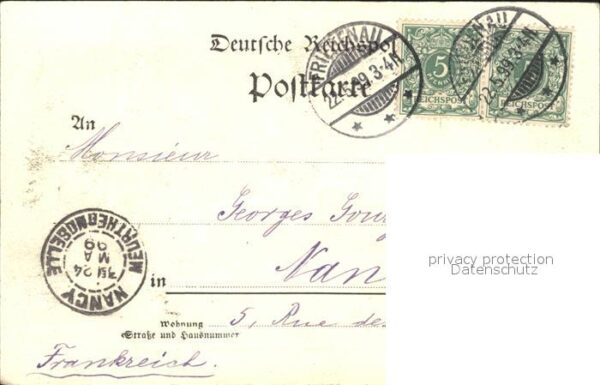 Deutsche Reichspost
Postkarte
FRIEDENAU
22.5.99.3-4N
5
REICHSPOST
22.5.99.3-4N
REICHSPOST
An
Monsieur
Georges
NANCY
24
MAI
99
MEURTHE-ET-MOSELLE
in
Nan
Wohnung
Straße und Hausnummer
5, Rue des
Frankreich.
privacy protection
Datenschutz